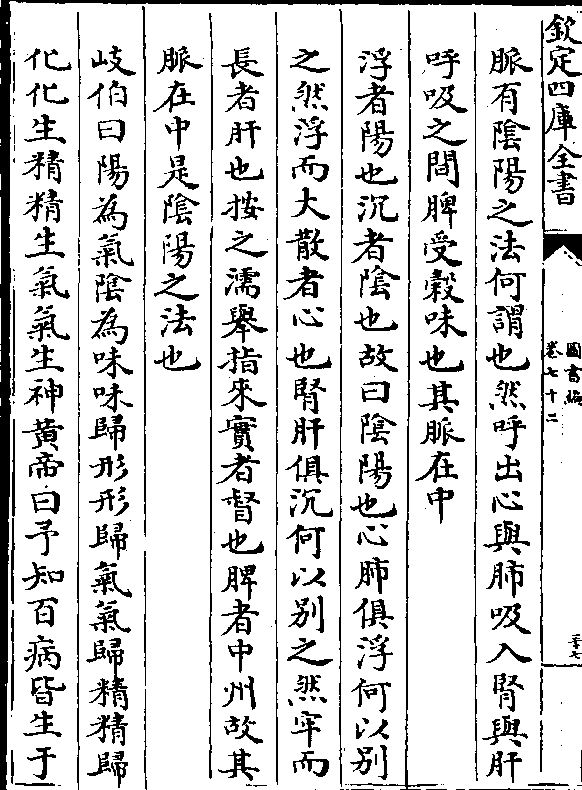 欽定四庫全書
圖書編
卷七十二
三十七
脈有陰陽之法何謂也然呼出心與肺吸入腎與肝
呼吸之間脾受穀味也其脈在中
浮者陽也沉者陰也故曰陰陽也心肺俱浮何以别
之然浮而大散者心也腎肝俱沉何以别之然牢而
長者肝也按之濡舉指來實者督也脾者中州故其
脈在中是陰陽之法也
岐伯曰陽為氣陰為味味歸形形歸氣氣歸精精歸
化化生精精生氣氣生神黄帝曰予知百病皆生于